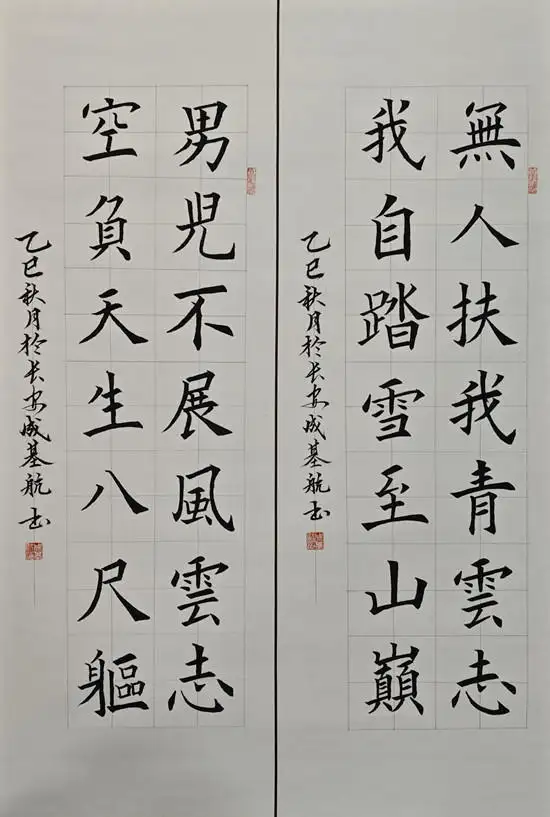 無人扶我青雲志
我自踏雪至山巔
乙巳秋月於长安成基航书
男児不展風雲志
空負天生八尺軀
乙巳秋月於长安成基航书